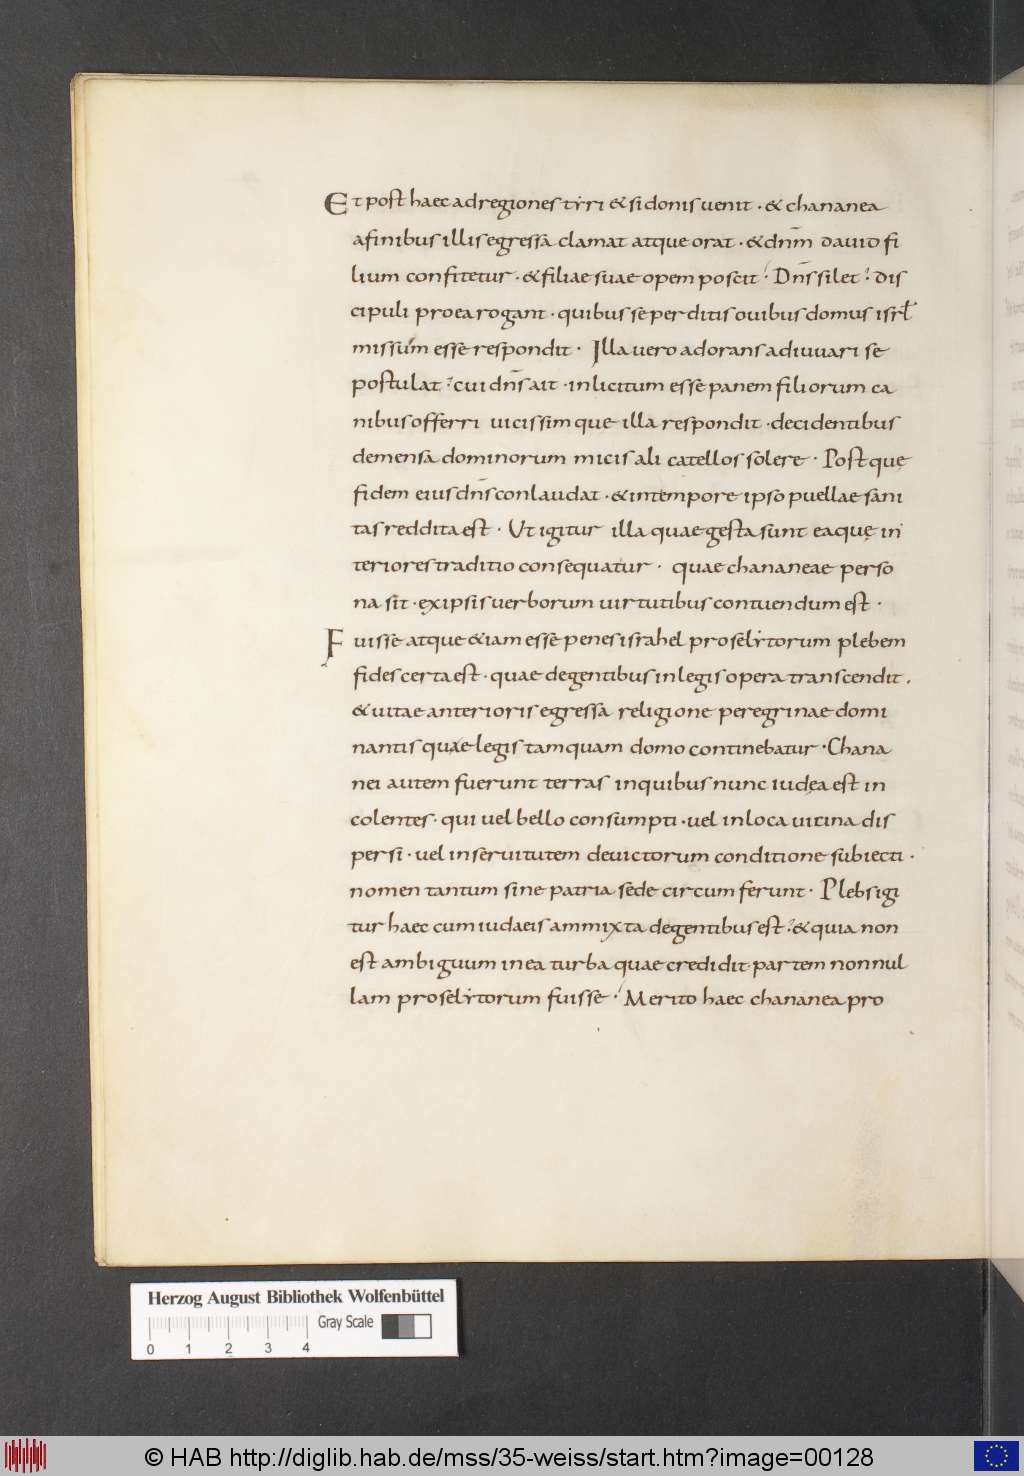 Et post haec ad regiones tyri & sidonis uenit · & chananea
a finibus illis egressa clamat atque orat · & dn̄m dauid fi
lium confitetur · & filiae suae opem poscit · Dn̄s silet · dis
cipuli pro ea rogant · quibus se perditis ouibus domus isrł
missum esse respondit · Illa uero adorans adiuuari se
postulat · cui dn̄s ait · inlicitum esse panem filiorum ca
nibus offerri uicissimque illa respondit · decidentibus
de mensa dominorum micis ali catellos solere · Postquę
fidem eius dn̄s conlaudat · & in tempore ipso puellae sani
tas reddita est · Ut igitur illa quae gesta sunt eaquę in
teriores traditio consequatur · quae chananeae perso
na sit · ex ipsis uerborum uirtutibus contuendum est ·
Fuisse atque &iam esse penes israhel proselytorum plebem
fides certa est · quae de gentibus in legis opera transcendit ·
& uitae anterioris egressa religione peregrinae domi
nantisquae legis tamquam domo continebatur · Chana
nei autem fuerunt terras in quibus nunc iudęa est in
colentes · qui uel bello consumpti · uel in loca uicina dis
persi · uel in seruitutem deuictorum conditione subiecti ·
nomen tantum sine patria sede circumferunt · Plebs igi
tur haec cum iudaeis ammixta de gentibus est · & quia non
est ambiguum in ea turba quae credidit partem nonnul
lam proselytorum fuisse · Merito haec chananea pro
Herzog August Bibliothek Wolfenbüttel
Gray Scale
0 1 2 3 4
© HAB http://diglib.hab.de/mss/35-weiss/start.htm?image=00128